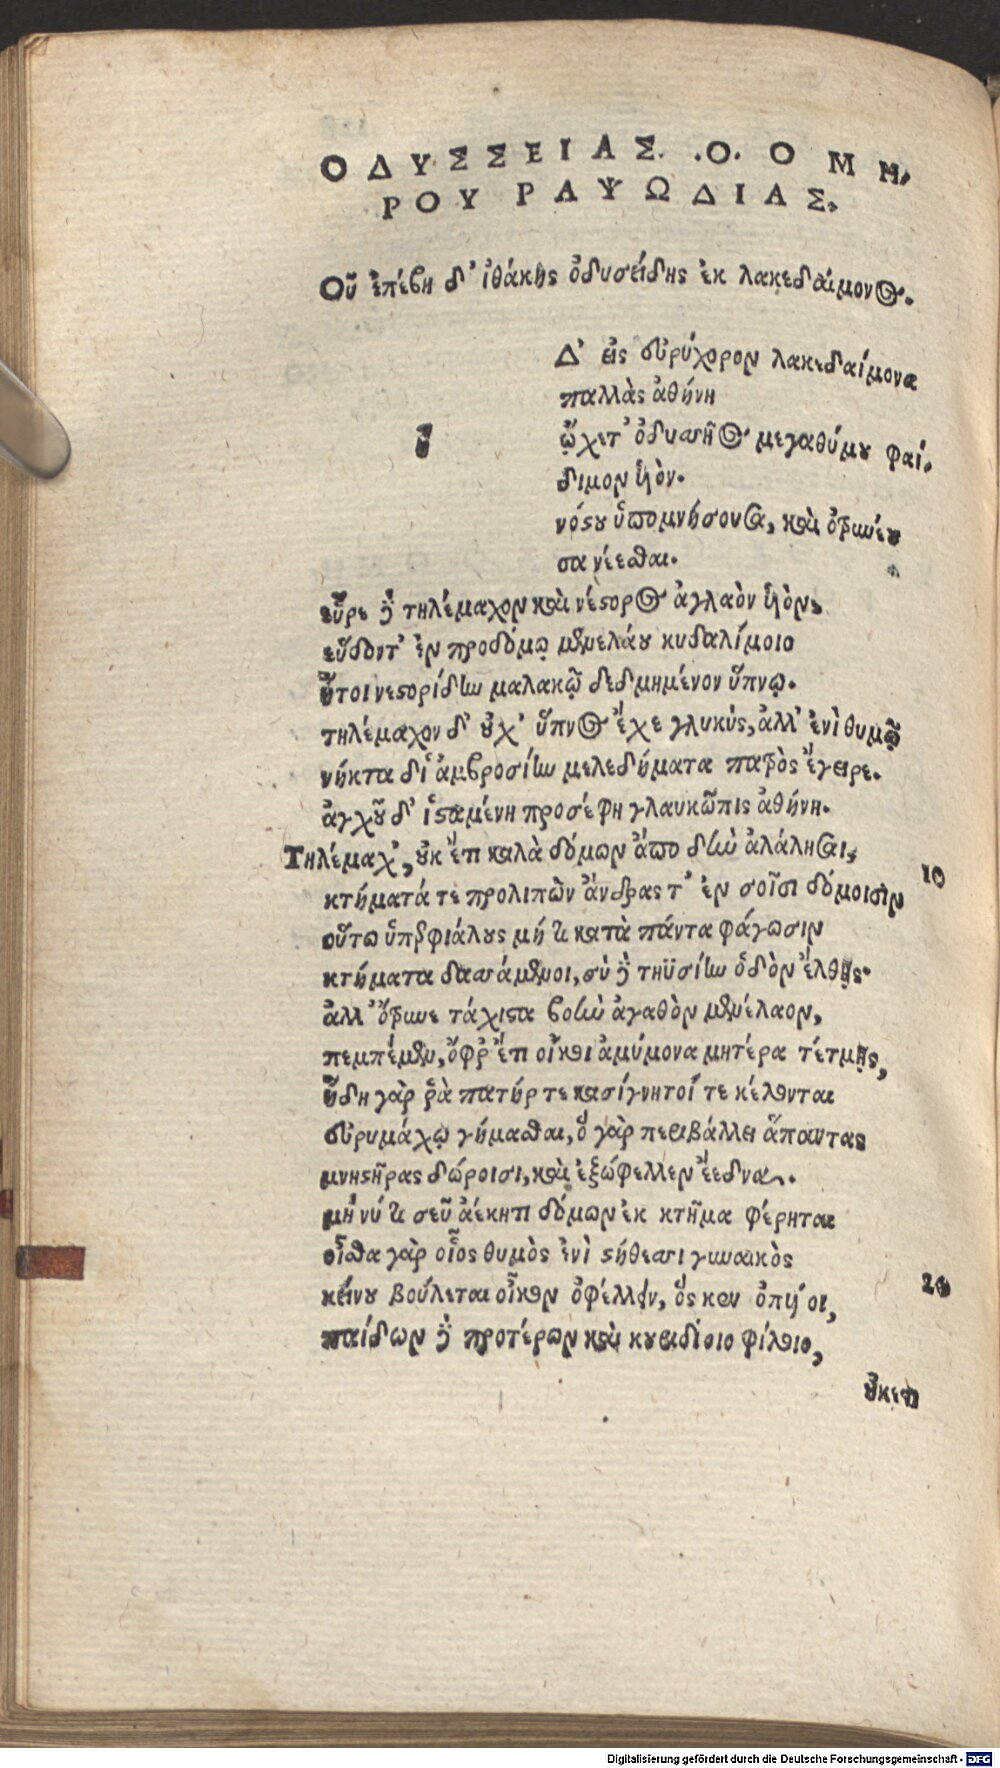 ΟΔΥΣΣΕΙΑΣ .Ο. ΟΜΗ,
ΡΟΥ ΡΑΨΩΔΙΑΣ.
Οὖ ἐπέβη δ' ἰθάκης ὀδυσείδης ἐκ λακεδαίμονος.
Δ' εἰς εὐρύχορον λακεδαίμονα
παλλὰς ἀθήνη
ῷχετ' ὀδυσσῆος μεγαθύμου φαί,
διμον ἡὸν.
νόστου ὑπομνήσουσα, καὶ ὀτρυνέου
σα νέεσθαι.
εὗρε δὲ τηλέμαχον καὶ νέστορος ἀγλαὸν ἡὸν,
εὕδοντ' ἐν προδόμῳ μενελάου κυδαλίμοιο
ἤτοι νεστορίδην μαλακῷ δεδμημένον ὕπνῳ.
τηλέμαχον δ' οὐχ' ὕπνος ἔχε γλυκύς, ἀλλ' ἐνὶ θυμῷ
νήκτα δι' ἀμβροσίην μελεδήματα πατρὸς ἔγειρε.
ἀγχοῦ δ' ἱσταμένη προσέφη γλαυκῶπις ἀθήνη.
Τηλέμαχ', οὐκ ἔτι καλὰ δόμων ἄπο δὴν ἀλάλησαι,
10
κτήματά τε προλιπὼν ἄνδρας τ' ἐν σοῖσι δόμοισιν
οὕτω ὑπερφιάλους μή τοι κατὰ πάντα φάγωσιν
κτήματα δασσάμενοι, σὺ δὲ τηϋσίην ὁδὸν ἔλθῃς.
ἀλλ' ὄτρυνε τάχιστα βοὴν ἀγαθὸν μενέλαον,
πεμπέμεν, ὄφρ' ἔτι οἴκοι ἀμύμονα μητέρα τέτμῃς,
ἤδη γὰρ ῥὰ πατήρ τε κασίγνητοί τε κέλονται
εὐρυμάχῳ γήμασθαι, ὃ γὰρ περιβάλλει ἅπαντας
μνηστῆρας δώροισι, καὶ ἐξώφελλεν ἔεδνα.
μή νύ τοι σεῦ ἀέκητι δόμων ἐκ κτῆμα φέρηται
οἶσθα γὰρ οἷος θυμὸς ἐνὶ στήθεσσι γυναικὸς
κείνου βούλεται οἶκον ὀφέλλειν, ὅς κεν ὀπυίοι,
20
παίδων δὲ προτέρων καὶ κουριδίοιο φίλοιο,
οὐκέτι
Digitalisierung gefördert durch die Deutsche Forschungsgemeinschaft - DFG